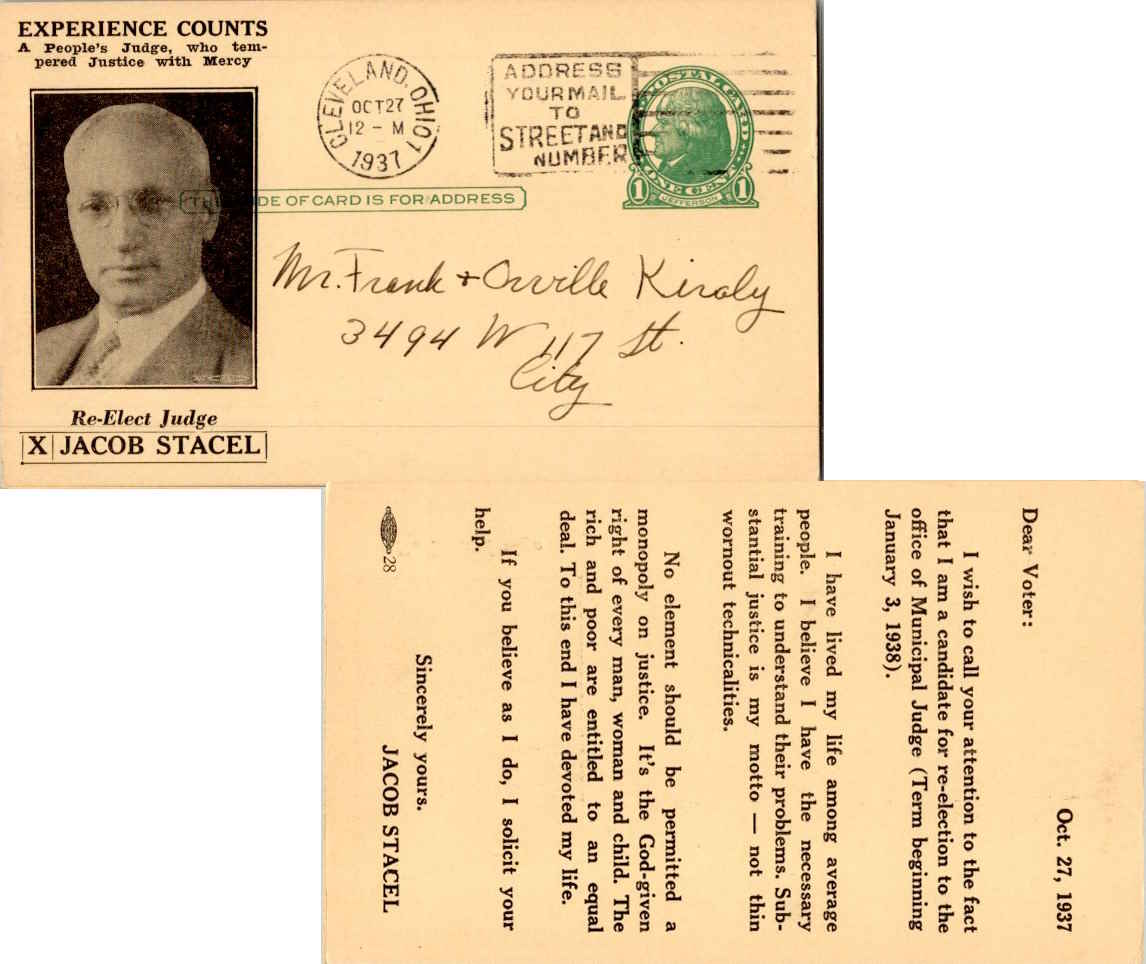 EXPERIENCE COUNTS
A People's Judge, who tem-
pered Justice with Mercy
CLEVELAND, OHIO 1
OCT 27
12 - M
1937
ADDRESS
YOUR MAIL
TO
STREET AND
NUMBER
POSTAL CARD
ONE CENT
1 JEFFERSON 1
THIS SIDE OF CARD IS FOR ADDRESS
Mr. Frank + Orville Kiraly
3494 W 117 St.
City
Re-Elect Judge
X JACOB STACEL
Oct. 27, 1937
Dear Voter:
I wish to call your attention to the fact
that I am a candidate for re-election to the
office of Municipal Judge (Term beginning
January 3, 1938).
I have lived my life among average
people. I believe I have the necessary
training to understand their problems. Sub-
stantial justice is my motto — not thin
wornout technicalities.
No element should be permitted a
monopoly on justice. It's the God-given
right of every man, woman and child. The
rich and poor are entitled to an equal
deal. To this end I have devoted my life.
If you believe as I do, I solicit your
help.
Sincerely yours.
JACOB STACEL
28